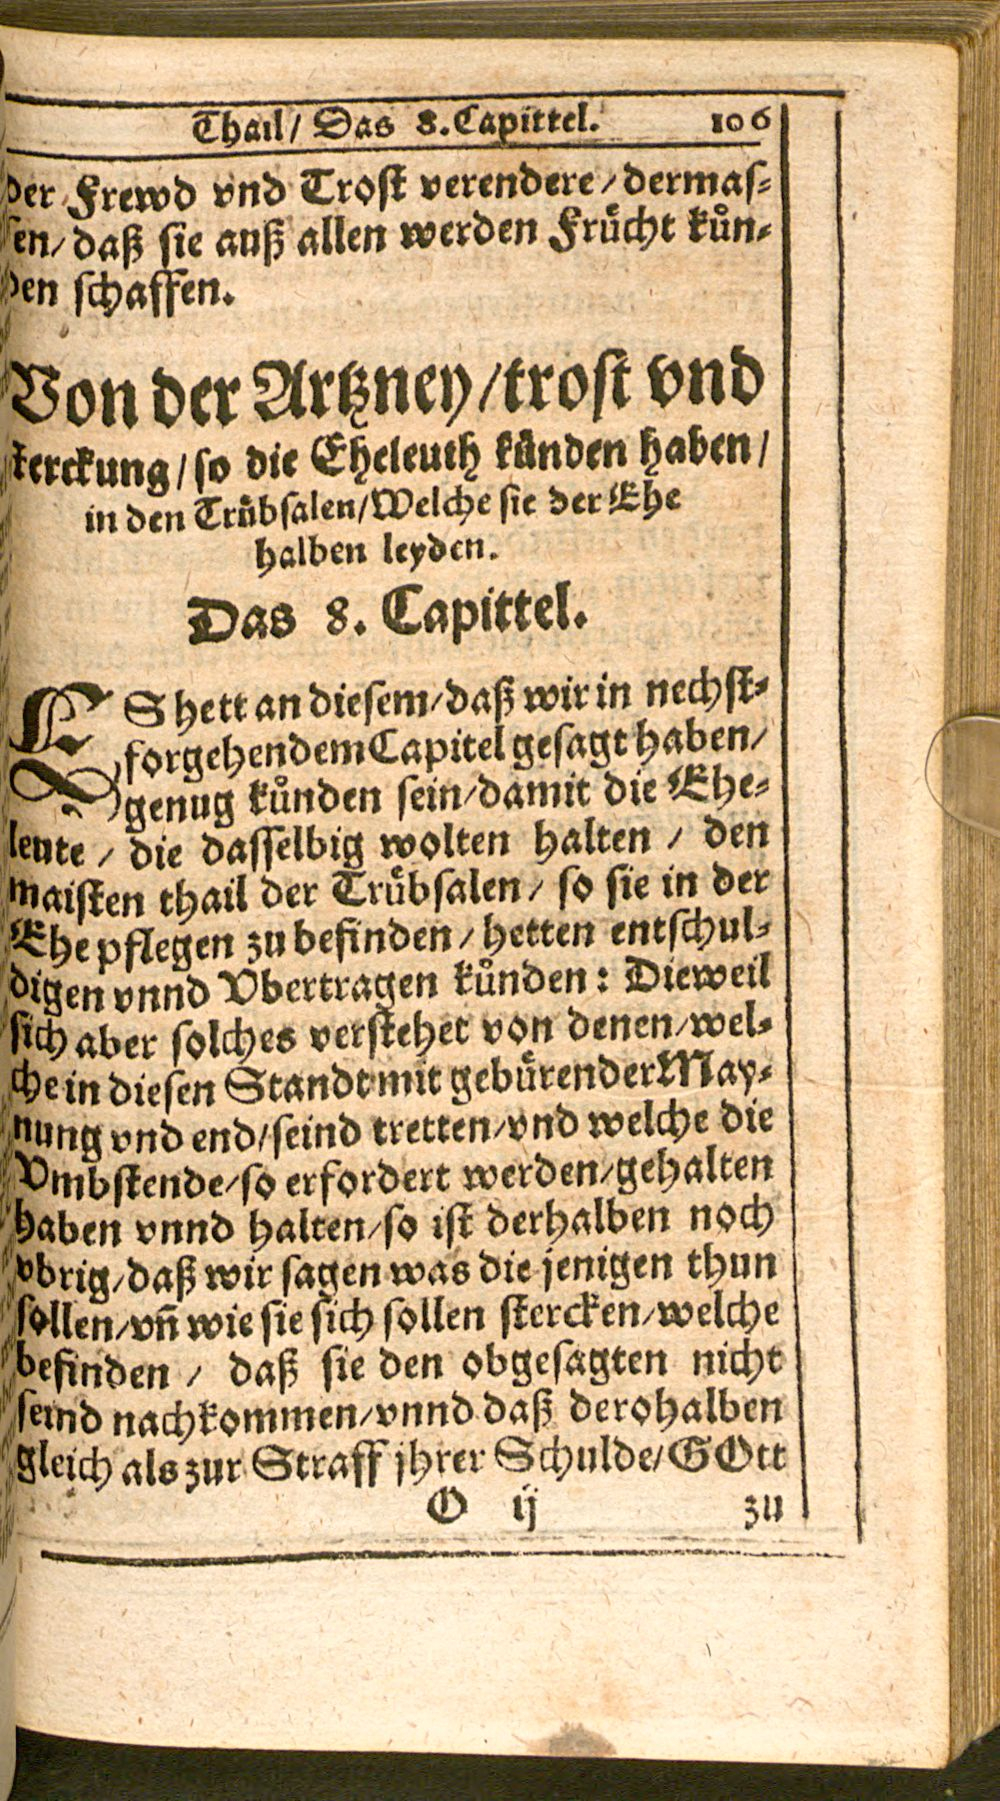 Thail/ Das 8. Capittel. 106
der Frewd vnd Trost verendere/dermas⸗
sen/daß sie auß allen werden Frücht kůn⸗
den schaffen.
Von der Artzney/trost vnd
sterckung/so die Eheleuth künden haben/
in den Trübsalen/Welche sie der Ehe
halben leyden.
Das 8. Capittel.
ES hett an diesem/daß wir in nechst⸗
forgehendem Capitel gesagt haben/
genug kůnden sein/damit die Ehe⸗
leute / die dasselbig wolten halten / den
maisten thail der Trübsalen/ so sie in der
Ehe pflegen zu befinden / hetten entschul⸗
digen vnnd Vbertragen kůnden: Dieweil
sich aber solches verstehet von denen/wel⸗
che in diesen Standt mit gebürender May⸗
nung vnd end/seind tretten/vnd welche die
Vmbstende/so erfordert werden/gehalten
haben vnnd halten/so ist derhalben noch
vbrig/daß wir sagen was die jenigen thun
sollen/vñ wie sie sich sollen stercken/welche
befinden / daß sie den obgesagten nicht
seind nachkommen/vnnd daß derohalben
gleich als zur Straff jhrer Schulde/GOtt
O ij zu